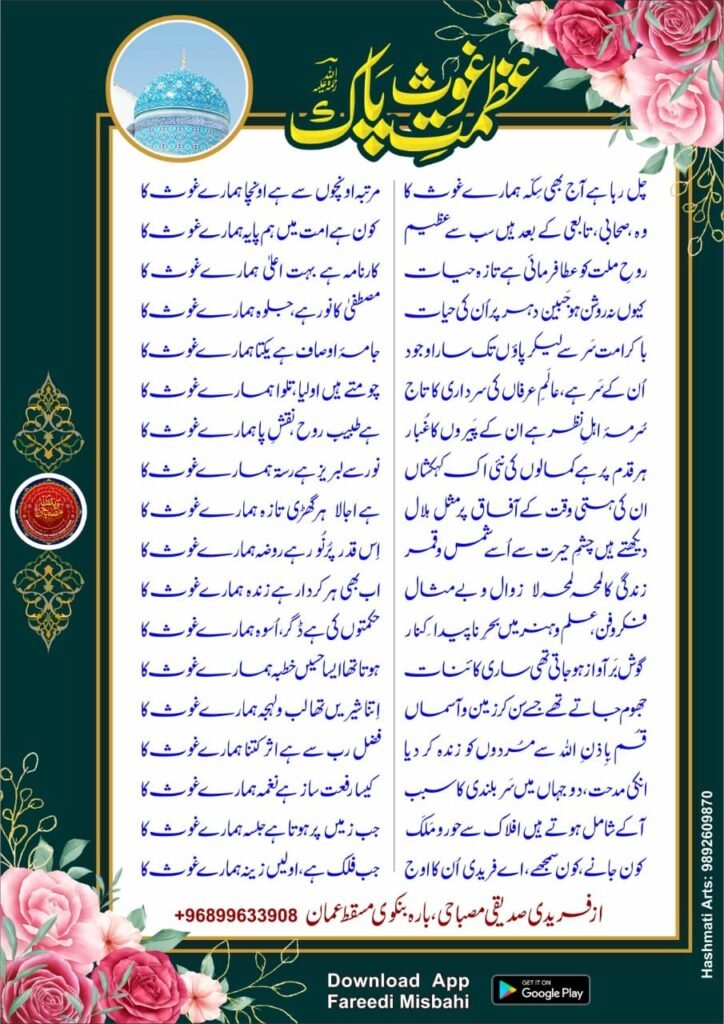 عظمتِ غوث پاک
رحمۃ اللہ علیہ
چل رہا ہے آج بھی سِکّہ ہمارے غوث کا
مرتبہ اونچوں سے ہے اونچا ہمارے غوث کا
وہ، صحابی، تابعی کے بعد ہیں سب سے عظیم
کون ہے امت میں ہم پایہ ہمارے غوث کا
روحِ ملت کو عطا فرمائی ہے تازہ حیات
کارنامہ ہے بہت اعلیٰ ہمارے غوث کا
کیوں نہ روشن ہو جَبینِ دہر پر اُن کی حیات
مصطفیٰ کا نور ہے، جلوہ ہمارے غوث کا
با کرامت سَر سے لیکر پاؤں تک سارا وجود
جامۂ اوصاف ہے یکتا ہمارے غوث کا
اُن کے سَر ہے، عالَمِ عرفاں کی سرداری کا تاج
چومتے ہیں اولیا، تلوا ہمارے غوث کا
سُرمۂ اہلِ نظر ہے ان کے پَیروں کا غُبار
ہے طبیبِ روح، نقشِ پا ہمارے غوث کا
ہر قدم پر ہے کمالوں کی نئی اک کہکشاں
نور سے لبریز ہے رستہ ہمارے غوث کا
ان کی ہستی وقت کے آفاق پر مثلِ ہلال
ہے اجالا ہر گھڑی تازہ ہمارے غوث کا
دیکھتے ہیں چشمِ حیرت سے اُسے شمس و قمر
اِس قدر پُرنُور ہے روضہ ہمارے غوث کا
زندگی کا لمحہ لمحہ لا زوال و بے مثال
اب بھی ہر کردار ہے زندہ ہمارے غوث کا
فکر و فن، علم و ہنر میں بحرِ ناپیدا کِنار
حکمتوں کی ہے ڈگر، اُسوہ ہمارے غوث کا
گوش بَر آواز ہو جاتی تھی ساری کائنات
ہوتا تھا ایسا حسیں خطبہ ہمارے غوث کا
جھوم جاتے تھے جسے سن کر زمین و آسماں
اِتنا شیریں تھا لب و لہجہ ہمارے غوث کا
قُم بِاِذنِ اللہ سے مُردوں کو زندہ کر دیا
فضلِ رب سے ہے اثر کتنا ہمارے غوث کا
انکی مدحت، دو جہاں میں سَر بلندی کا سبب
کیسا رفعت ساز ہے نغمہ ہمارے غوث کا
آ کے شامل ہوتے ہیں افلاک سے حور و مَلَک
جب زمیں پر ہوتا ہے جلسہ ہمارے غوث کا
کون جانے، کون سمجھے، اے فریدی اُن کا اوج
جب فلک ہے، اولیں زینہ ہمارے غوث کا
از فریدی صدیقی مصباحی، بارہ بنکوی مسقط عمان +96899633908
Download App
Fareedi Misbahi
GET IT ON
Google Play
Hashmati Arts: 9892609870